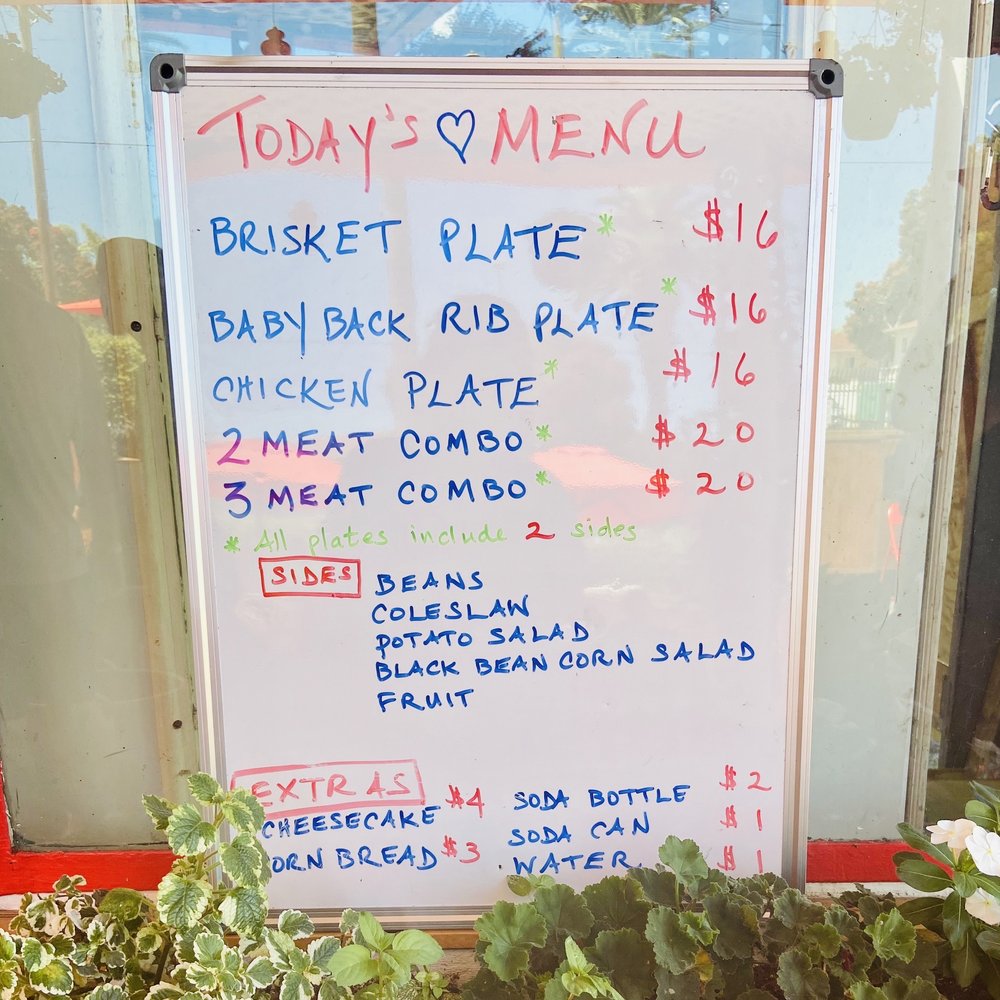 TODAY'S ♡ MENU
BRISKET PLATE* $16
BABY BACK RIB PLATE* $16
CHICKEN PLATE* $16
2 MEAT COMBO* $20
3 MEAT COMBO* $20
* All plates include 2 sides
SIDES BEANS
COLESLAW
POTATO SALAD
BLACK BEAN CORN SALAD
FRUIT
EXTRAS
CHEESECAKE $4
ORN BREAD $3
SODA BOTTLE $2
SODA CAN $1
WATER $1